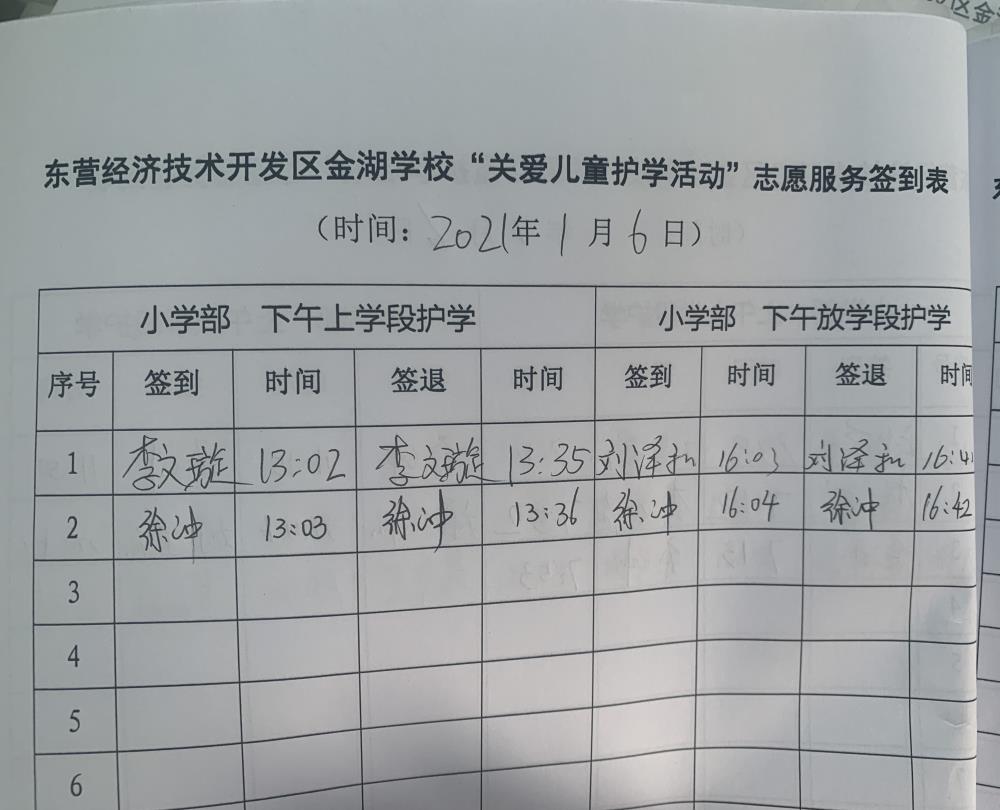 东营经济技术开发区金湖学校“关爱儿童护学活动”志愿服务签到表
(时间: 2021年 1 月 6 日)
小学部 下午上学段护学 小学部 下午放学段护学
序号 签到 时间 签退 时间 签到 时间 签退 时间
1 李文璇 13:02 李文璇 13:35 刘泽 16:03 刘泽 16:4
2 徐冲 13:03 徐冲 13:36 徐冲 16:04 徐冲 16:42
3
4
5
6